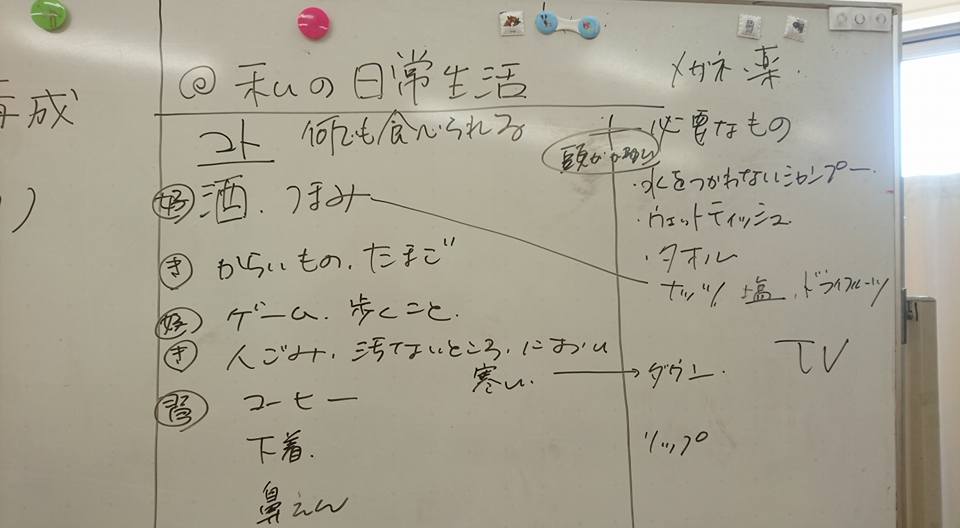 再成
@ 私の日常生活
メガネ・薬.
コト 何でも食べられる
必要なもの
頭がかゆい
好 酒. つまみ
・水をつかわないシャンプー.
・ウェットティッシュ
き からいもの. たまご
・タオル
ナッツ 塩. ドライフルーツ
好 ゲーム. 歩くこと.
き 人ごみ. 汚ないところ. におい
TV
寒い. → ダウン.
習 コーヒー
下着.
リップ
鼻えん